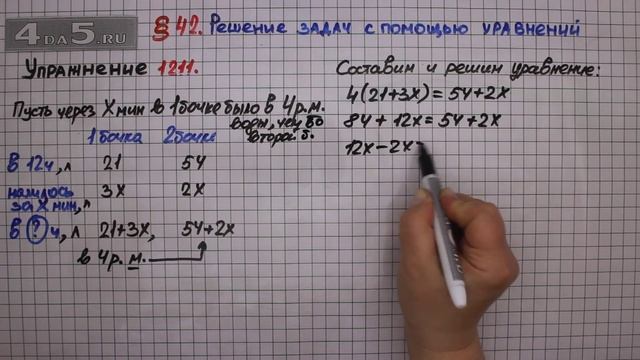 4DA5.RU
§42. Решение задач с помощью уравнений
Упражнение 1211.
Пусть через X мин в 1 бочке было в 4 р. м.
воды, чем во
второй б.
1 бочка 2 бочка
В 12ч, л 21 54
налилось 3x 2x
за X мин, л
В ? ч, л 21+3x, 54+2x
в 4 р. м.
Составим и решим уравнение:
4(21+3x)=54+2x
84+12x=54+2x
12x-2x=